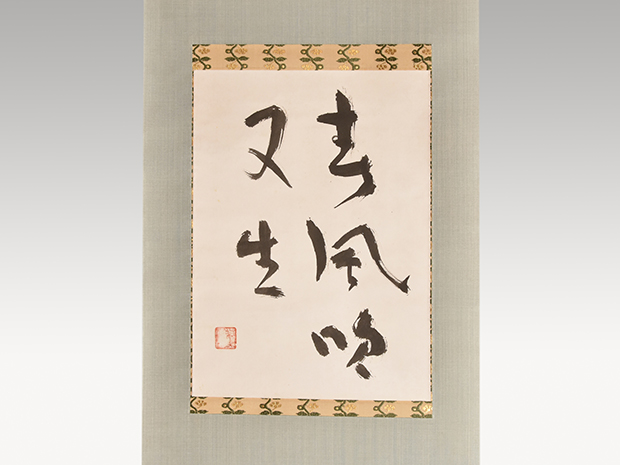 春風吹
又生